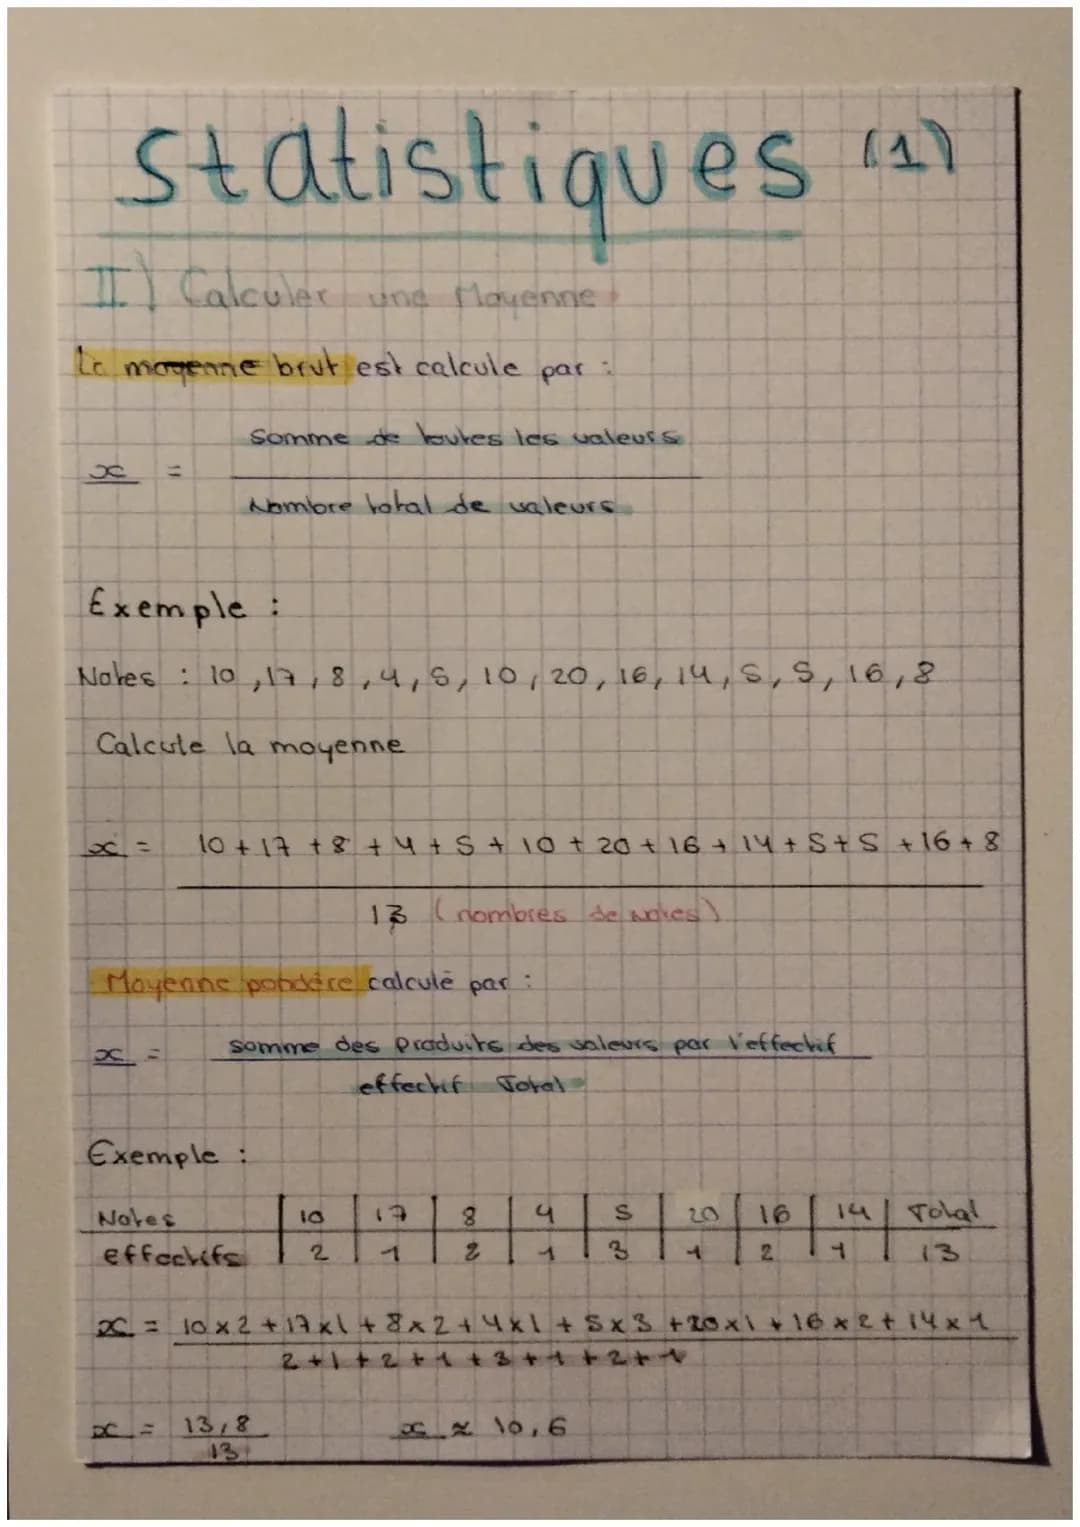 statistiques (1)
II) Calculer une Moyenne
La moyenne brut est calcule par :
Somme de toutes les valeurs
x =
Nombre total de valeurs
Exemple :
Notes : 10, 17, 8, 4, 5, 10, 20, 16, 14, 5, 5, 16, 8
Calcule la moyenne
x = 10 + 17 + 8 + 4 + 5 + 10 + 20 + 16 + 14 + 5 + 5 + 16 + 8
13 (nombres de notes)
Moyenne pondére calculé par :
x = somme des produits des valeurs par l'effectif
effectif Total
Exemple :
Notes | 10 | 17 | 8 | 4 | 5 | 20 | 16 | 14 | Total
effectifs | 2 | 1 | 2 | 1 | 3 | 1 | 2 | 1 | 13
x = 10 x 2 + 17 x 1 + 8 x 2 + 4 x 1 + 5 x 3 + 20 x 1 + 16 x 2 + 14 x 1
2 + 1 + 2 + 1 + 3 + 1 + 2 + 1
x = 13,8 x ≈ 10,6
13